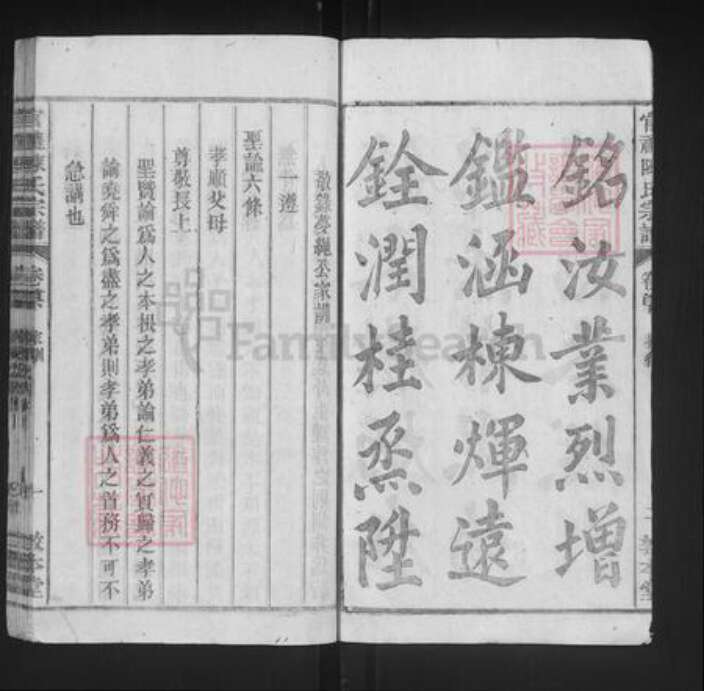 銘汝業烈增
鑑涵棟煇遠
銓潤桂烝陞
敬錄夢繩公家訓
一遵
聖諭六條
孝順父母
尊敬長上
聖賢論為人之本根之孝弟論仁義之實歸之孝弟
論堯舜之為盡之孝弟則孝弟為人之首務不可不
急講也
陳氏宗譜
敦本堂
FamilySearch